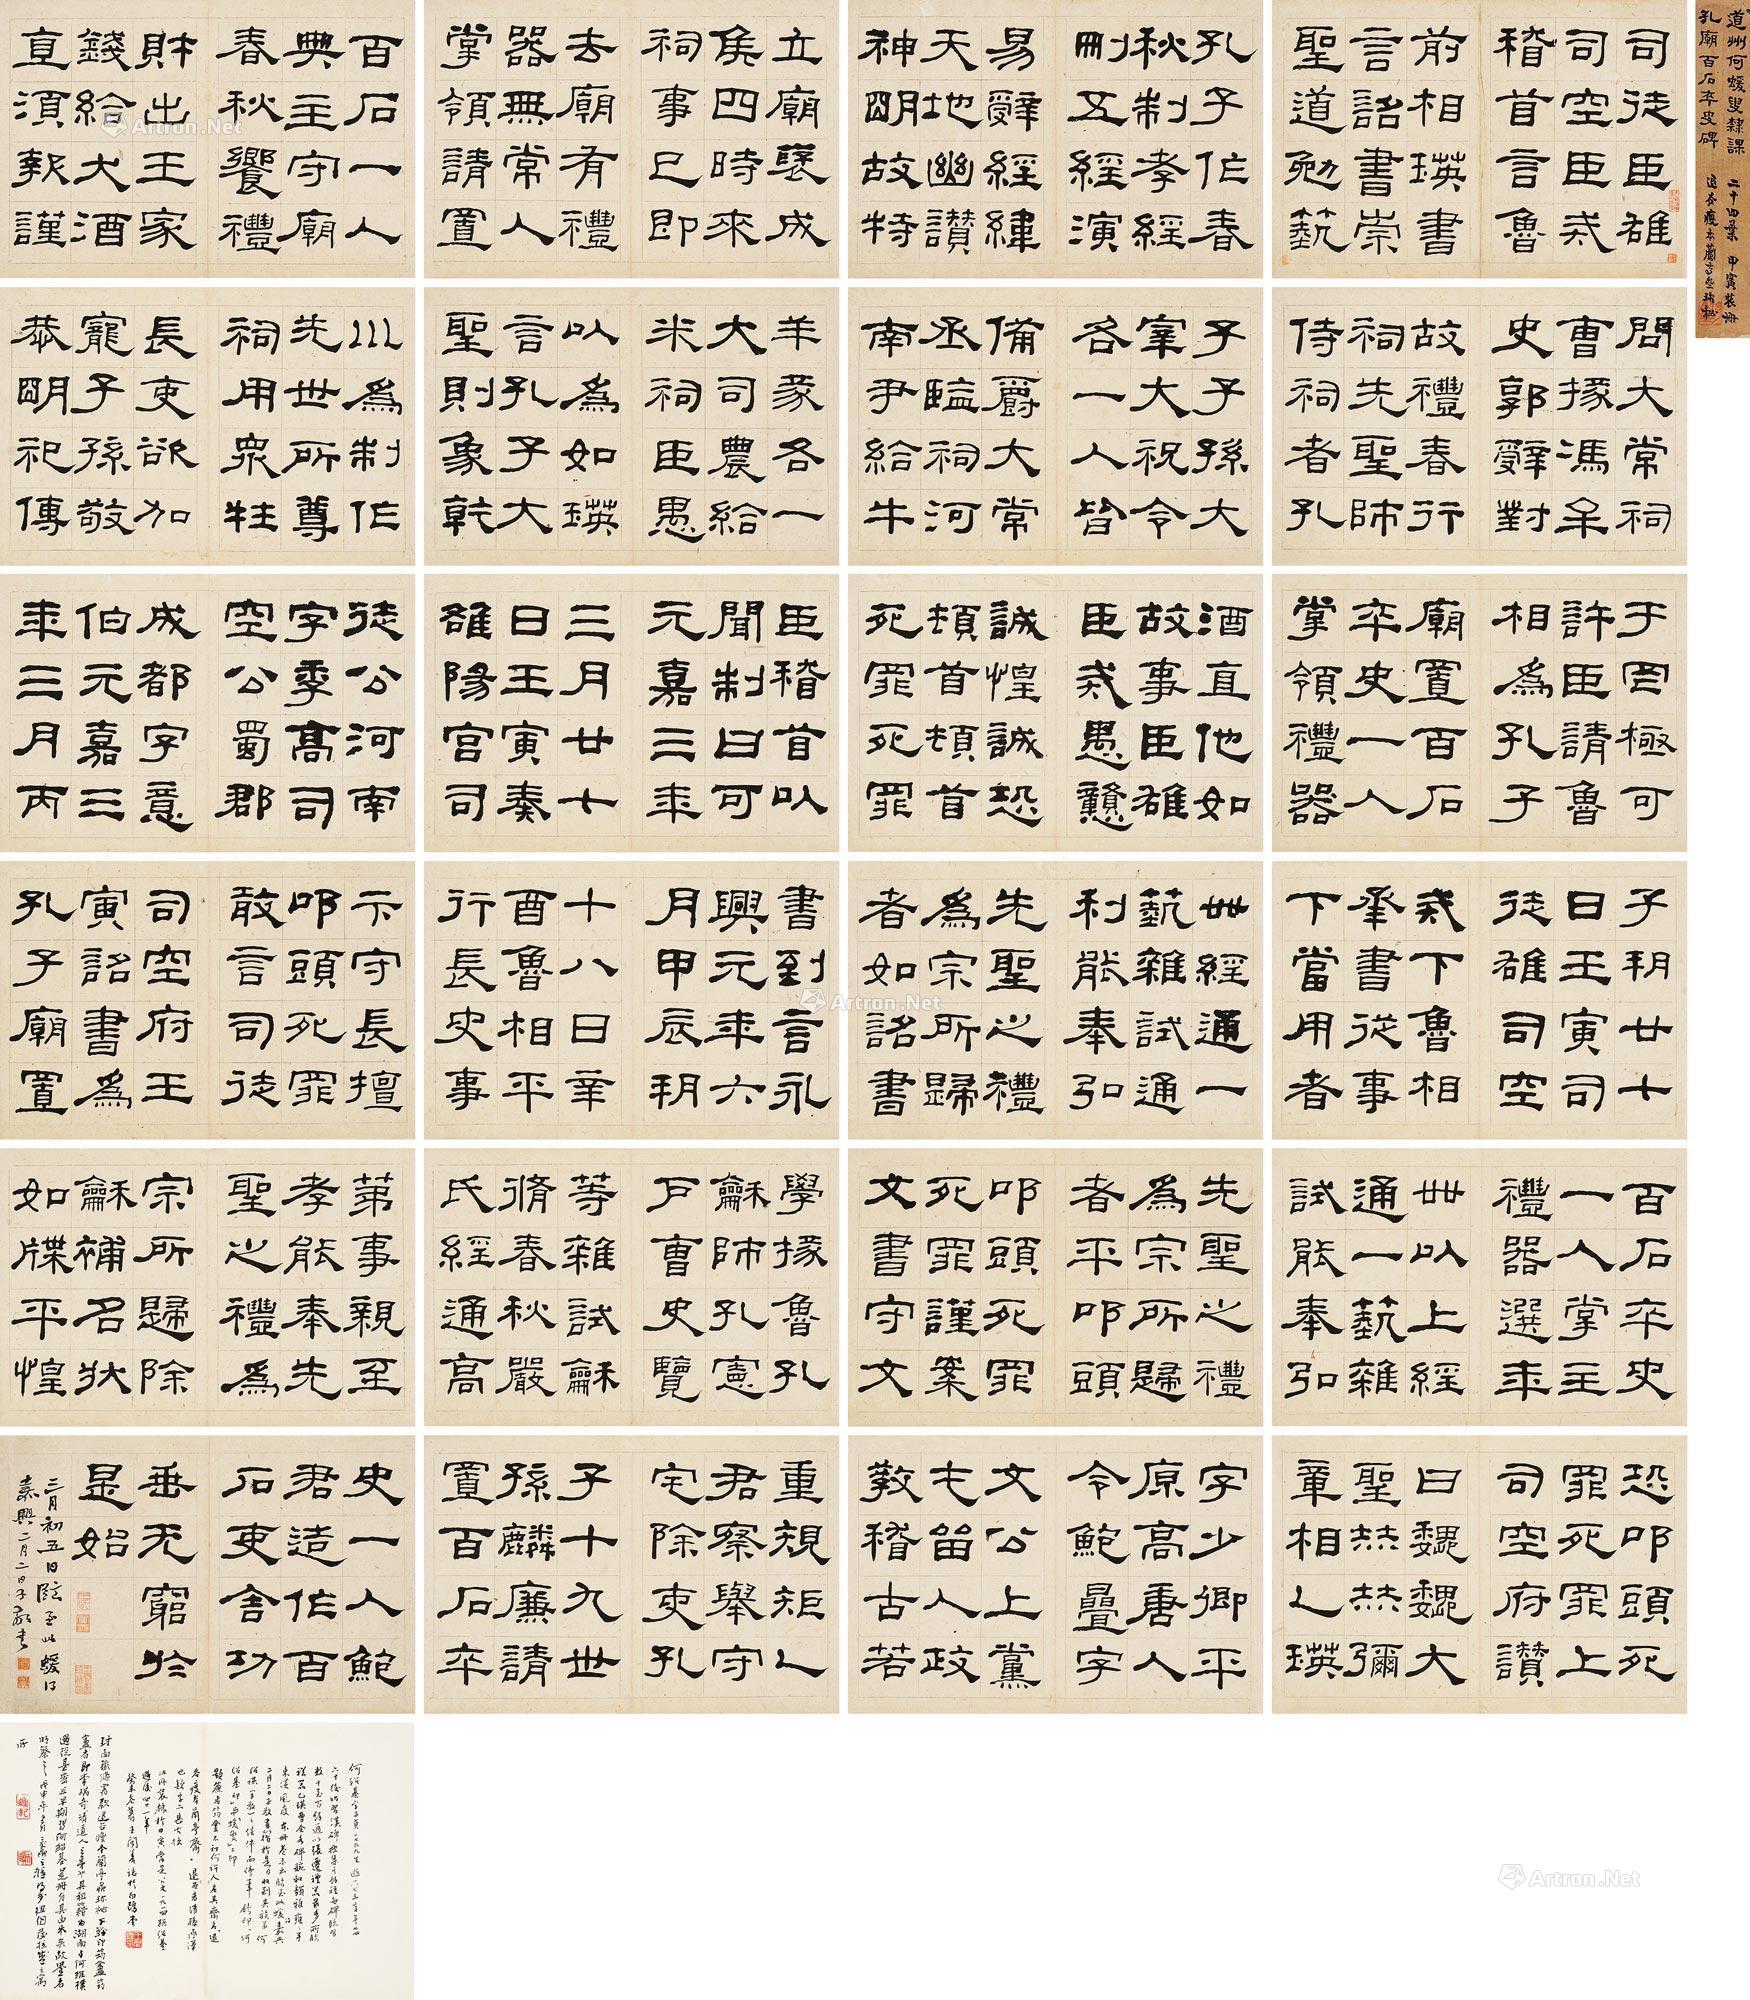 道州何蝯叟隸課
孔廟百石卒史碑
二十四葉 甲寅裝冊
司徒臣雄
司空臣戒
稽首言魯
前相瑛書
言詔書崇
聖道勉藝
孔子作春
秋制孝經
刪五經演
易辭經緯
天地幽讃
神明故特
立廟褒成
侯四時來
祠事已即
去廟有禮
器無常人
掌領請置
百石一人
典主守廟
春秋饗禮
財出王家
錢給犬酒
直須報謹
問大常祠
曹掾馮牟
史郭辭對
故禮春行
祠先聖師
侍祠者孔
子子孫大
宰大祝令
各一人皆
備爵大常
丞臨祠河
南尹給牛
羊豕各一
大司農給
米祠臣愚
以為如瑛
言孔子大
聖則象乾
川為制作
先世所尊
祠用衆牲
長吏欲加
寵子孫敬
恭明祀傳
于罔極可
許臣請魯
相為孔子
廟置百石
卒史一人
掌領禮器
酒直他如
故事臣雄
臣戒愚戇
誠惶誠恐
頓首頓首
死罪死罪
臣稽首以
聞制曰可
元嘉三年
三月廿七
日壬寅奏
雒陽宮司
徒公河南
字季高司
空公蜀郡
成都字意
伯元嘉三
年三月丙
子朔廿七
日壬寅司
徒雄司空
戒下魯相
承書從事
下當用者
卌經通一
藝雜試通
利能奉弘
先聖之禮
為宗所歸
者如詔書
書到言永
興元年六
月甲辰朔
十八日辛
酉魯相平
行長史事
卞守長擅
叩頭死罪
敢言司徒
司空府壬
寅詔書為
孔子廟置
百石卒史
一人掌主
禮器選年
卌以上經
通一藝雜
試能奉弘
先聖之禮
為宗所歸
者平叩頭
叩頭死罪
死罪謹案
文書守文
學掾魯孔
龢師孔憲
戶曹史覽
等雜試龢
脩春秋嚴
氏經通高
第事親至
孝能奉先
聖之禮為
宗所歸除
龢補名狀
如牒平惶
恐叩頭死
罪死罪上
司空府讃
曰巍巍大
聖赫赫彌
章相乙瑛
字少卿平
原高唐人
令鮑疊字
文公上黨
屯留人政
教稽古若
重規矩乙
君察舉守
宅除吏孔
子十九世
孫麟廉請
置百石卒
史一人鮑
君造作百
石吏舍功
垂无窮於
是始
三月初五日臨至此蝯
嘉興二月二日子敬書
Artron.Net
Artron.Net
Artron.Net
Artron.Net